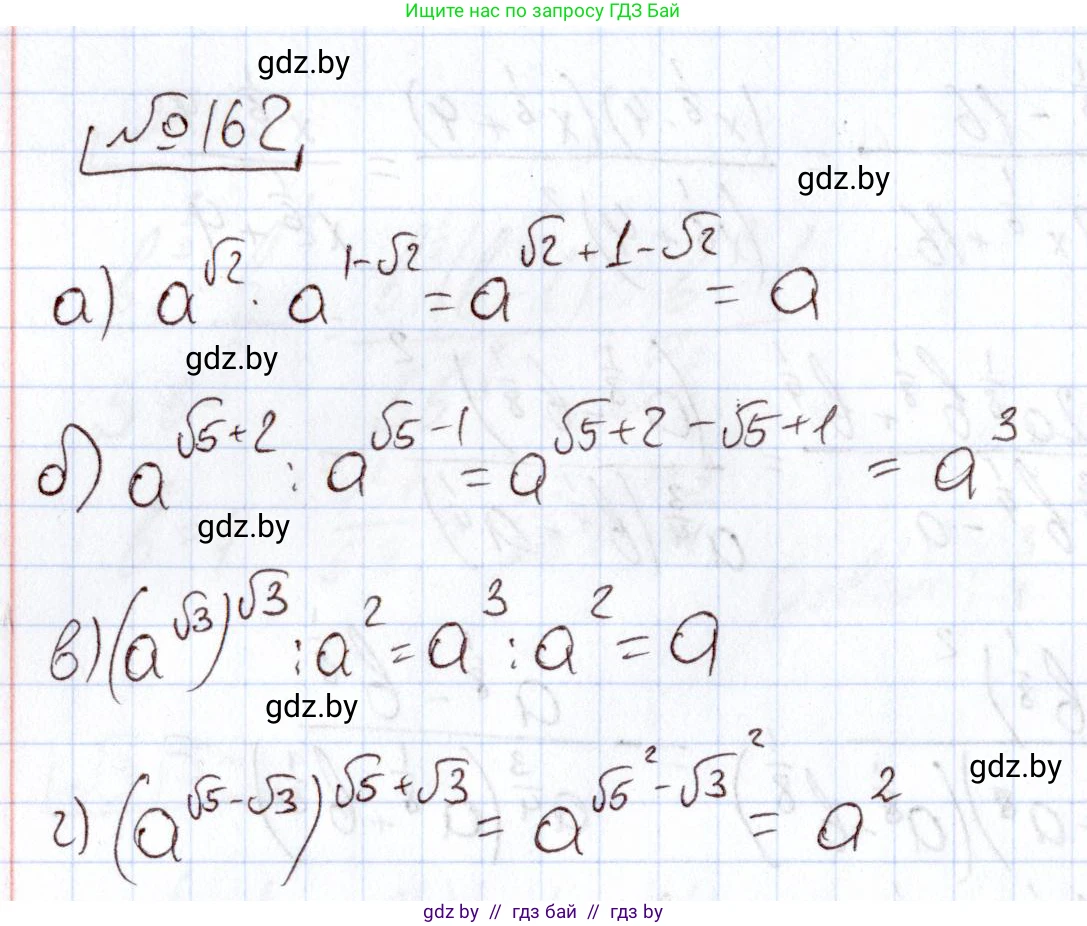 Ищите нас по запросу ГДЗ Бай
gdz.by
№162
gdz.by
а) a^√2 · a^(1-√2) = a^(√2+1-√2) = a
gdz.by
б) a^(√5+2) : a^(√5-1) = a^(√5+2-√5+1) = a^3
gdz.by
в) (a^√3)^√3 : a^2 = a^3 : a^2 = a
gdz.by
gdz.by
г) (a^(√5-√3))^(√5+√3) = a^(√5^2-√3^2) = a^2
gdz.by // гдз бай // гдз by